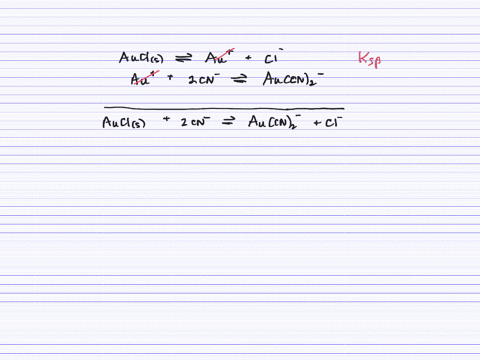 AuCl(s) ⇌ Au⁺ + Cl⁻ Ksp
Au⁺ + 2CN⁻ ⇌ Au(CN)₂⁻
AuCl(s) + 2CN⁻ ⇌ Au(CN)₂⁻ + Cl⁻